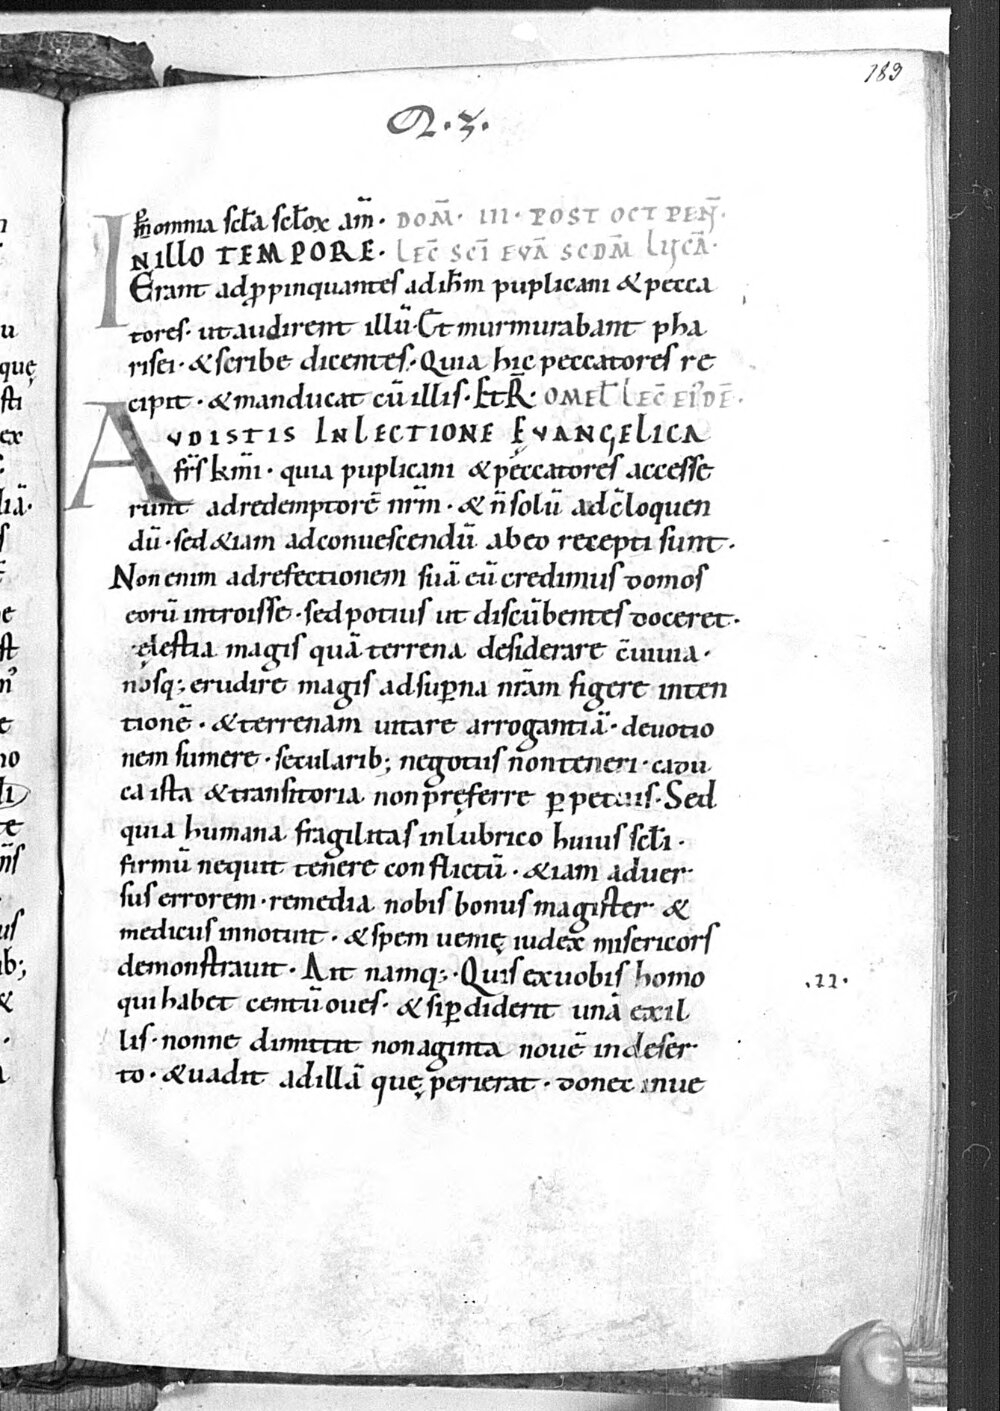 189
Q·3·
ꝑ omnia scl̄a scl̄oꝝ am̄· DOM̄· III· POST OCT PEN̄·
IN ILLO TEMPORE· LEC̄ SCĪ EVĀ SCDM̄ LUCĀ·
Erant adꝓpinquantes ad ih̄m puplicani & pecca
tores· ut audirent illū· Et murmurabant pha
risei· & scribe dicentes· Quia hic peccatores re
cipit· & manducat cū illis· Et R̄ OMEL̄ LEC̄ EIꝰDĒ·
AVDISTIS IN LECTIONE EVANGELICA
fr̄s km̄i· quia puplicani & peccatores accesse
runt ad redemptorē nr̄m· & n̄ solū ad c̄loquen
dū· sed &iam ad conuescendū ab eo recepti sunt·
Non enim ad refectionem suā eū credimus domos
eorū introisse· sed potius ut discūbentes doceret·
cęlestia magis quā terrena desiderare c̄uiuia·
nosq; erudire magis ad suꝑna nr̄am figere inten
tionē· & terrenam uitare arrogantiā· deuotio
nem sumere· secularib; negotiis non teneri· cadu
ca ista & transitoria non pręferre ꝑpetuis· Sed
quia humana fragilitas in lubrico huius scl̄i·
firmū nequit tenere conflictū· &iam aduer
sus errorem· remedia nobis bonus magister &
medicus innotuit· & spem uenię iudex misericors
demonstrauit· Ait namq;· Quis ex uobis homo
qui habet centū oues· & si ꝑdiderit unā ex il
lis· nonne dimittit nonaginta nouē in deser
to· & uadit ad illā quę perierat· donec inue
·11·